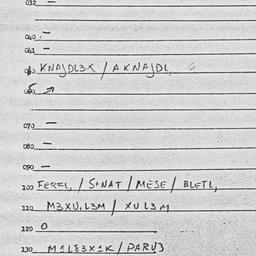 032 —
040 —
041 —
050 KNAJDL3K / AKNAJDL,
060
070 —
080 —
090 —
100 FEFFL, / S1NAT / MESE / BLETL,
110 M3XUIL3M / XUL3M
120 0
130 M1L83X1K / PARU3